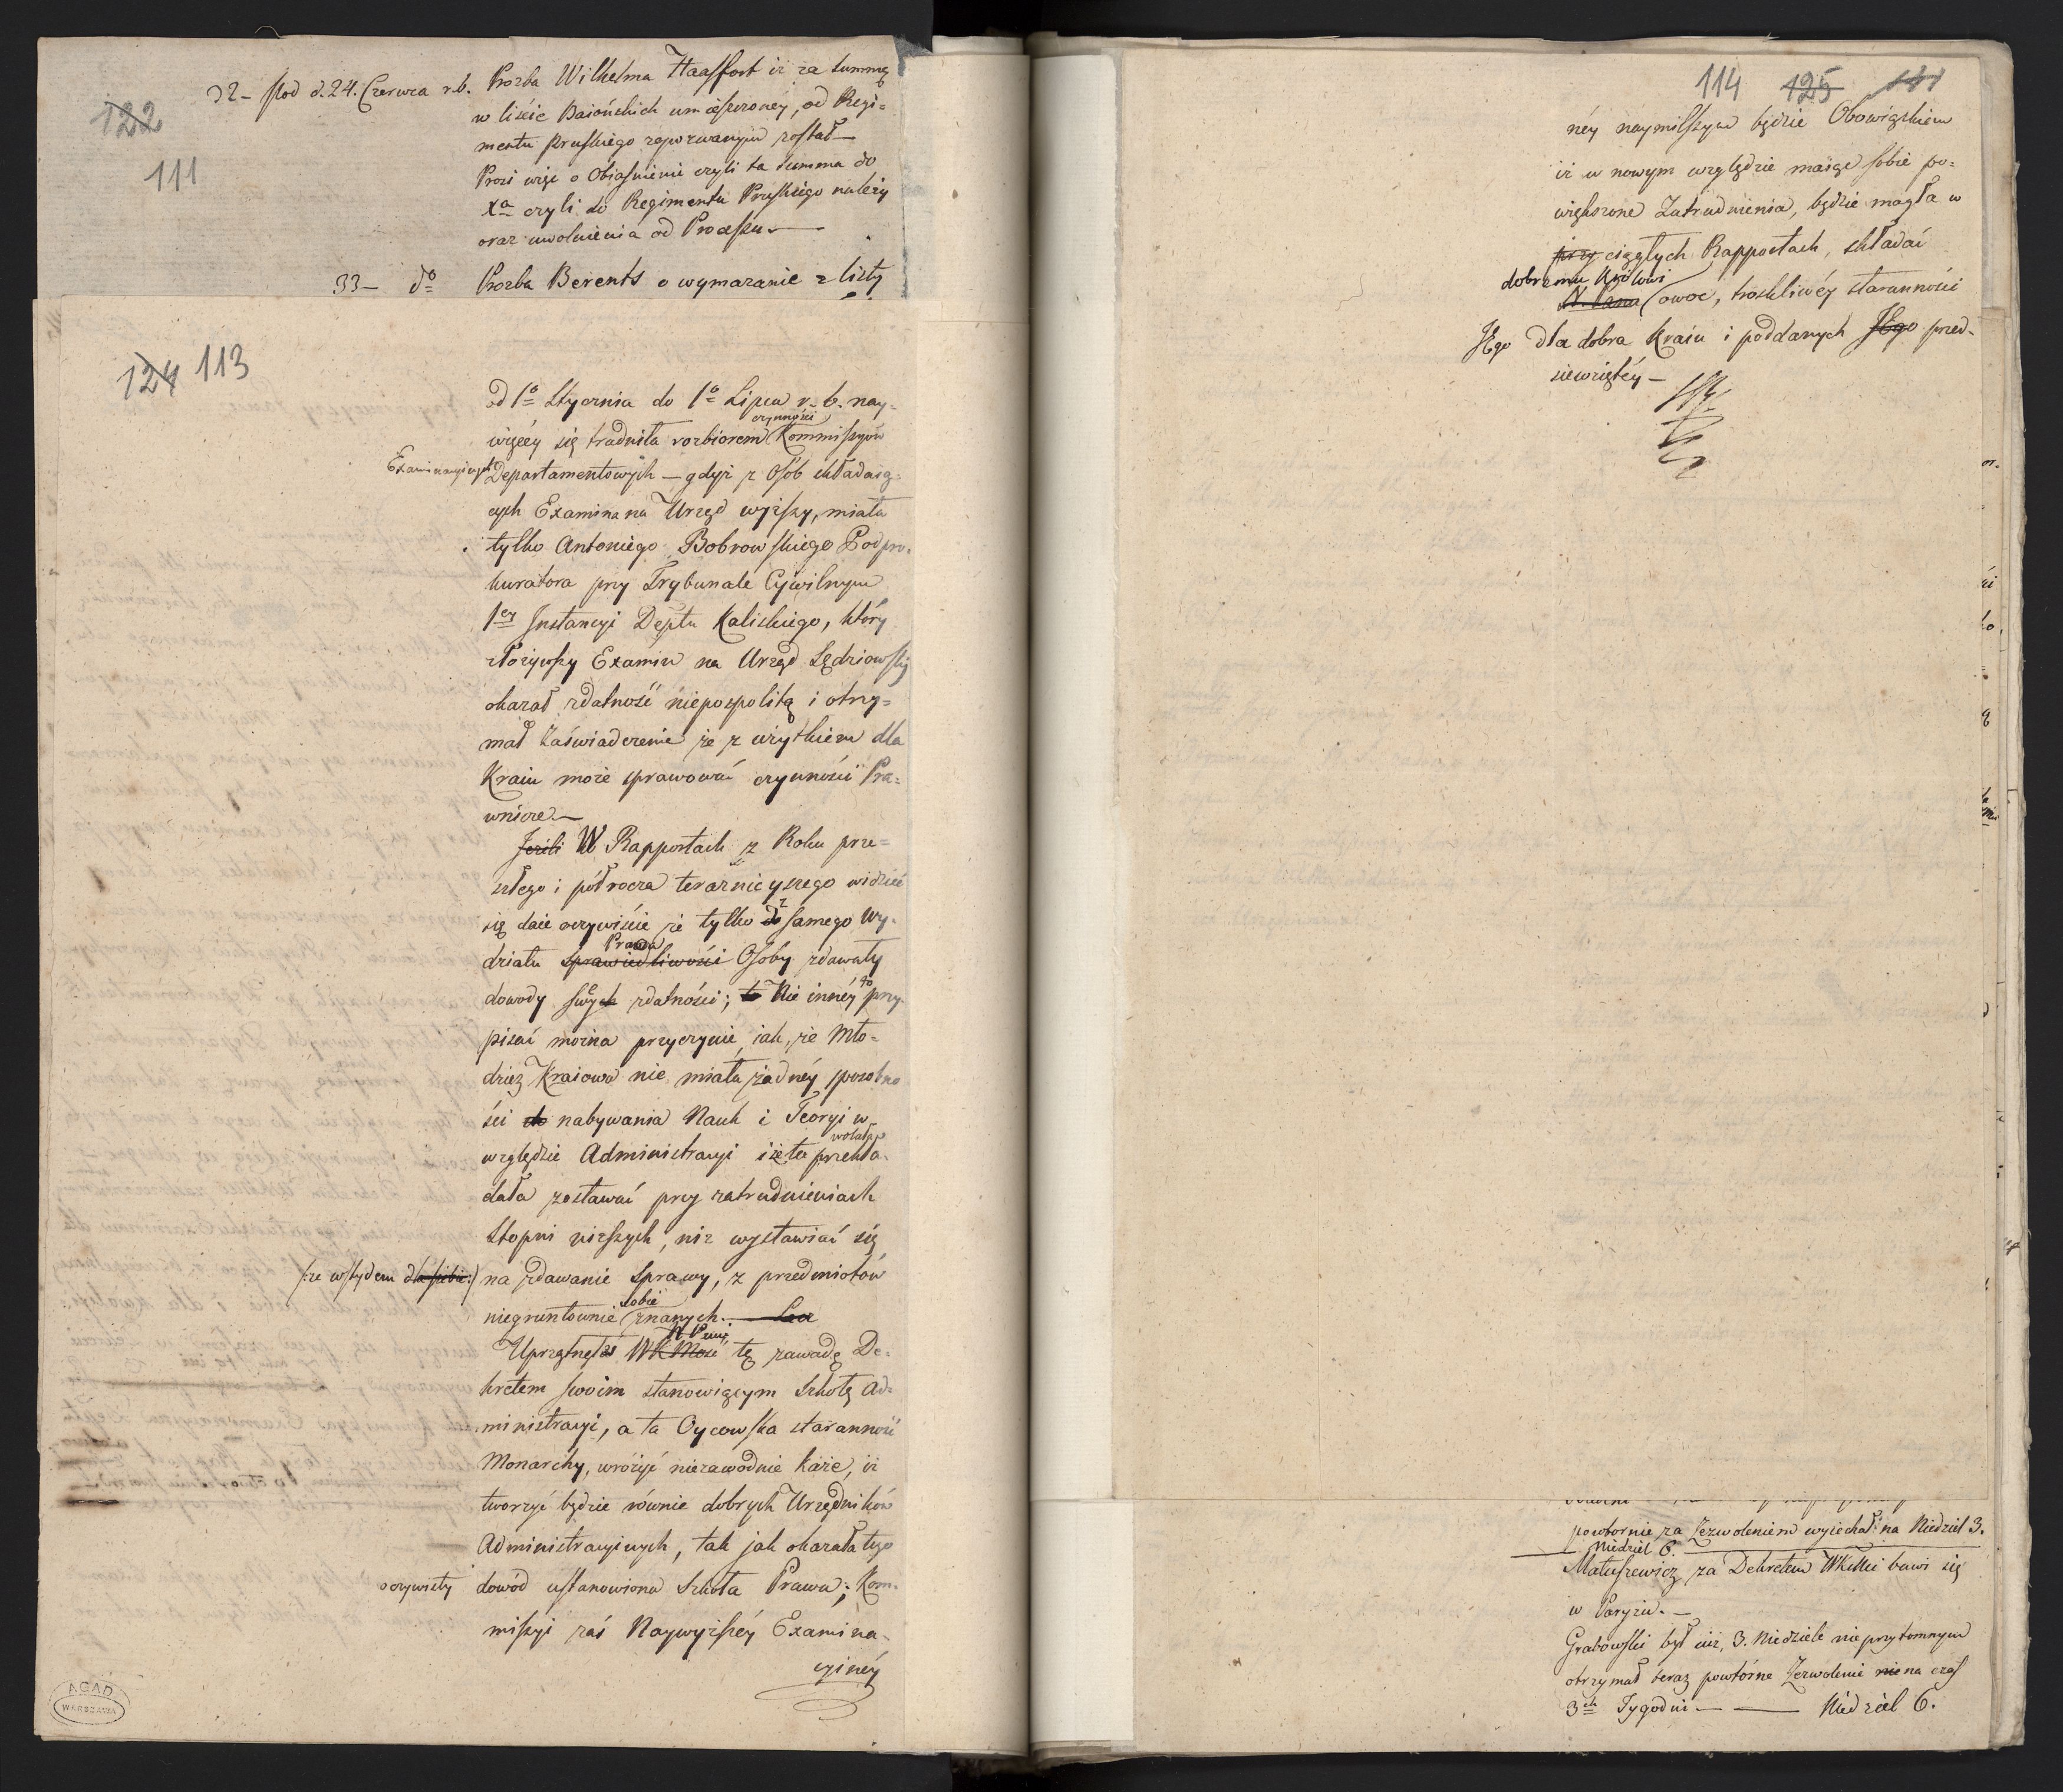 122
111
32 – pod d. 24. Czerwca r.b. Prozba Wilhelma Haasfort iż za summę
w liście Baiońskich umieszczoney, od Regi=
mentu Pruskiego zapozwanym został –
Prosi więc o Obiaśnienie czyli ta summa do
Xa czyli do Regimentu Pruskiego należy
oraz uwolnienia od Processu. –
33 – do Prozba Berents o wymazanie z listy
124 113
od 1o Stycznia do 1o Lipca r. b. nay=
więcéy się trudniła rozbiorem czynności Kommissyów
Examinacyinych Departamentowych – gdyż z Osób składaią=
cych Examina na Urząd wyższy, miała
tylko Antoniego Bobrowskiego Podpro=
kuratora przy Trybunale Cywilnym
1ey Instancyi Deptu Kaliskiego, który
złożywszy Examin na Urząd Sędziowski
okazał zdatność niepospolitą i otrzy=
mał Zaświadczenie że z użytkiem dla
Kraiu może sprawować czynności Pra=
wnicze. –
Jeżeli W Rapportach z Roku prze=
szłego i półrocza teraznieyszego widzieć
się daie oczywiście że tylko do z samego Wy=
działu sprawiedliwości Prawa Osoby zdawały
dowody swych zdatności; to Nie innéy to przy=
pisać można przyczynie, iak, że Mło=
dzież Kraiowa nie miała żadnéy sposobno
ści do nabywania Nauk i Teoryi w
względzie Administracyi i że ta wolała przekła=
dała zostawać przy zatrudnieniach
Stopni niższych, niż wystawiać się
/:ze wstydem dla siebie:/ na zdawanie sprawy, z przedmiotów
niegruntownie sobie znanych. –
Uprzątnęłeś WKMość N. Panie tę zawadę De=
kretem swoim stanowiącym Szkołę Ad=
ministracyi, a ta Oycowska staranność
Monarchy, wróżyć niezawodnie każe, iż
tworzyć będzie równie dobrych Urzędników
Administracyinych, tak jak okazała tego
oczywisty dowód ustanowiona Szkoła Prawa; Kom=
missyi zaś Naywyższéy Examina=
cyinéy
AGAD
WARSZAWA
114 125
néy naymilszym będzie Obowiązkiem
iż w nowym względzie maiąc sobie po=
większone Zatrudnienia, będzie mogła w
przy ciągłych Rapportach, składać
dobremu Królowi
N. Pana owoc, troskliwéy staranności
JEgo dla dobra Kraiu i poddanych JEgo przed=
siewziętéy –
powtornie za Zezwoleniem wyiechał na Niedziel 3.
Niedziel 6.
Matuszewicz za Dekretem WKMci bawi się
w Paryżu. –
Grabowski był iuż, 3. Niedziele nieprzytomnym
otrzymał teraz powtórne Zezwolenie nie na czas
3ch Tygodni – – Niedziel 6.